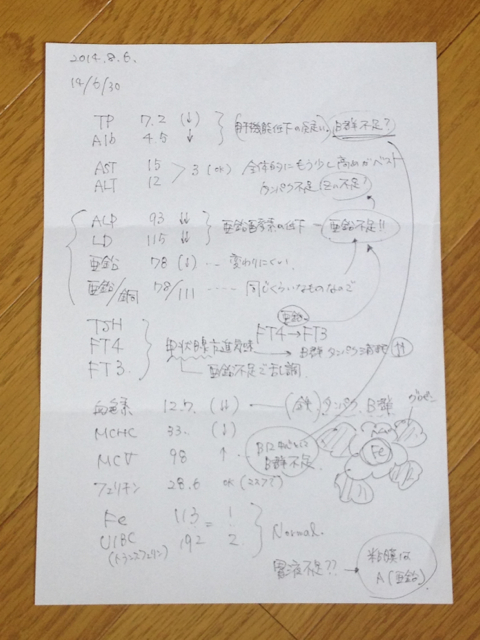 2014.8.6.
14/6/30
TP 7.2 (↓) 肝機能低下の疑い、B群不足?
Alb 4.5 ↓
AST 15 > 3 (ok) 全体的にもう少し高めがベスト
ALT 12 タンパク不足 亜の不足!
ALP 93 ↓↓ 亜鉛酵素の低下 — 亜鉛不足!!
LD 115 ↓↓
亜鉛 78 (↓) … 変わりにくい
亜鉛/銅 78/111 …… 同じくらいなものなので
亜鉛
TSH
FT4 甲状腺亢進 FT4→FT3
FT3 → B群 タンパク消耗
亜鉛不足で乱調
血色素 12.7 (↓↓) ← タンパク、B群
MCHC 33. (↓)
MCV 98 ↑ B群不足
Fe
フェリチン 28.6 ok
Fe 113 = 1
UIBC 192 2 Normal.
(トランスフェリン)
胃液不足?? → 粘膜は A (亜鉛)